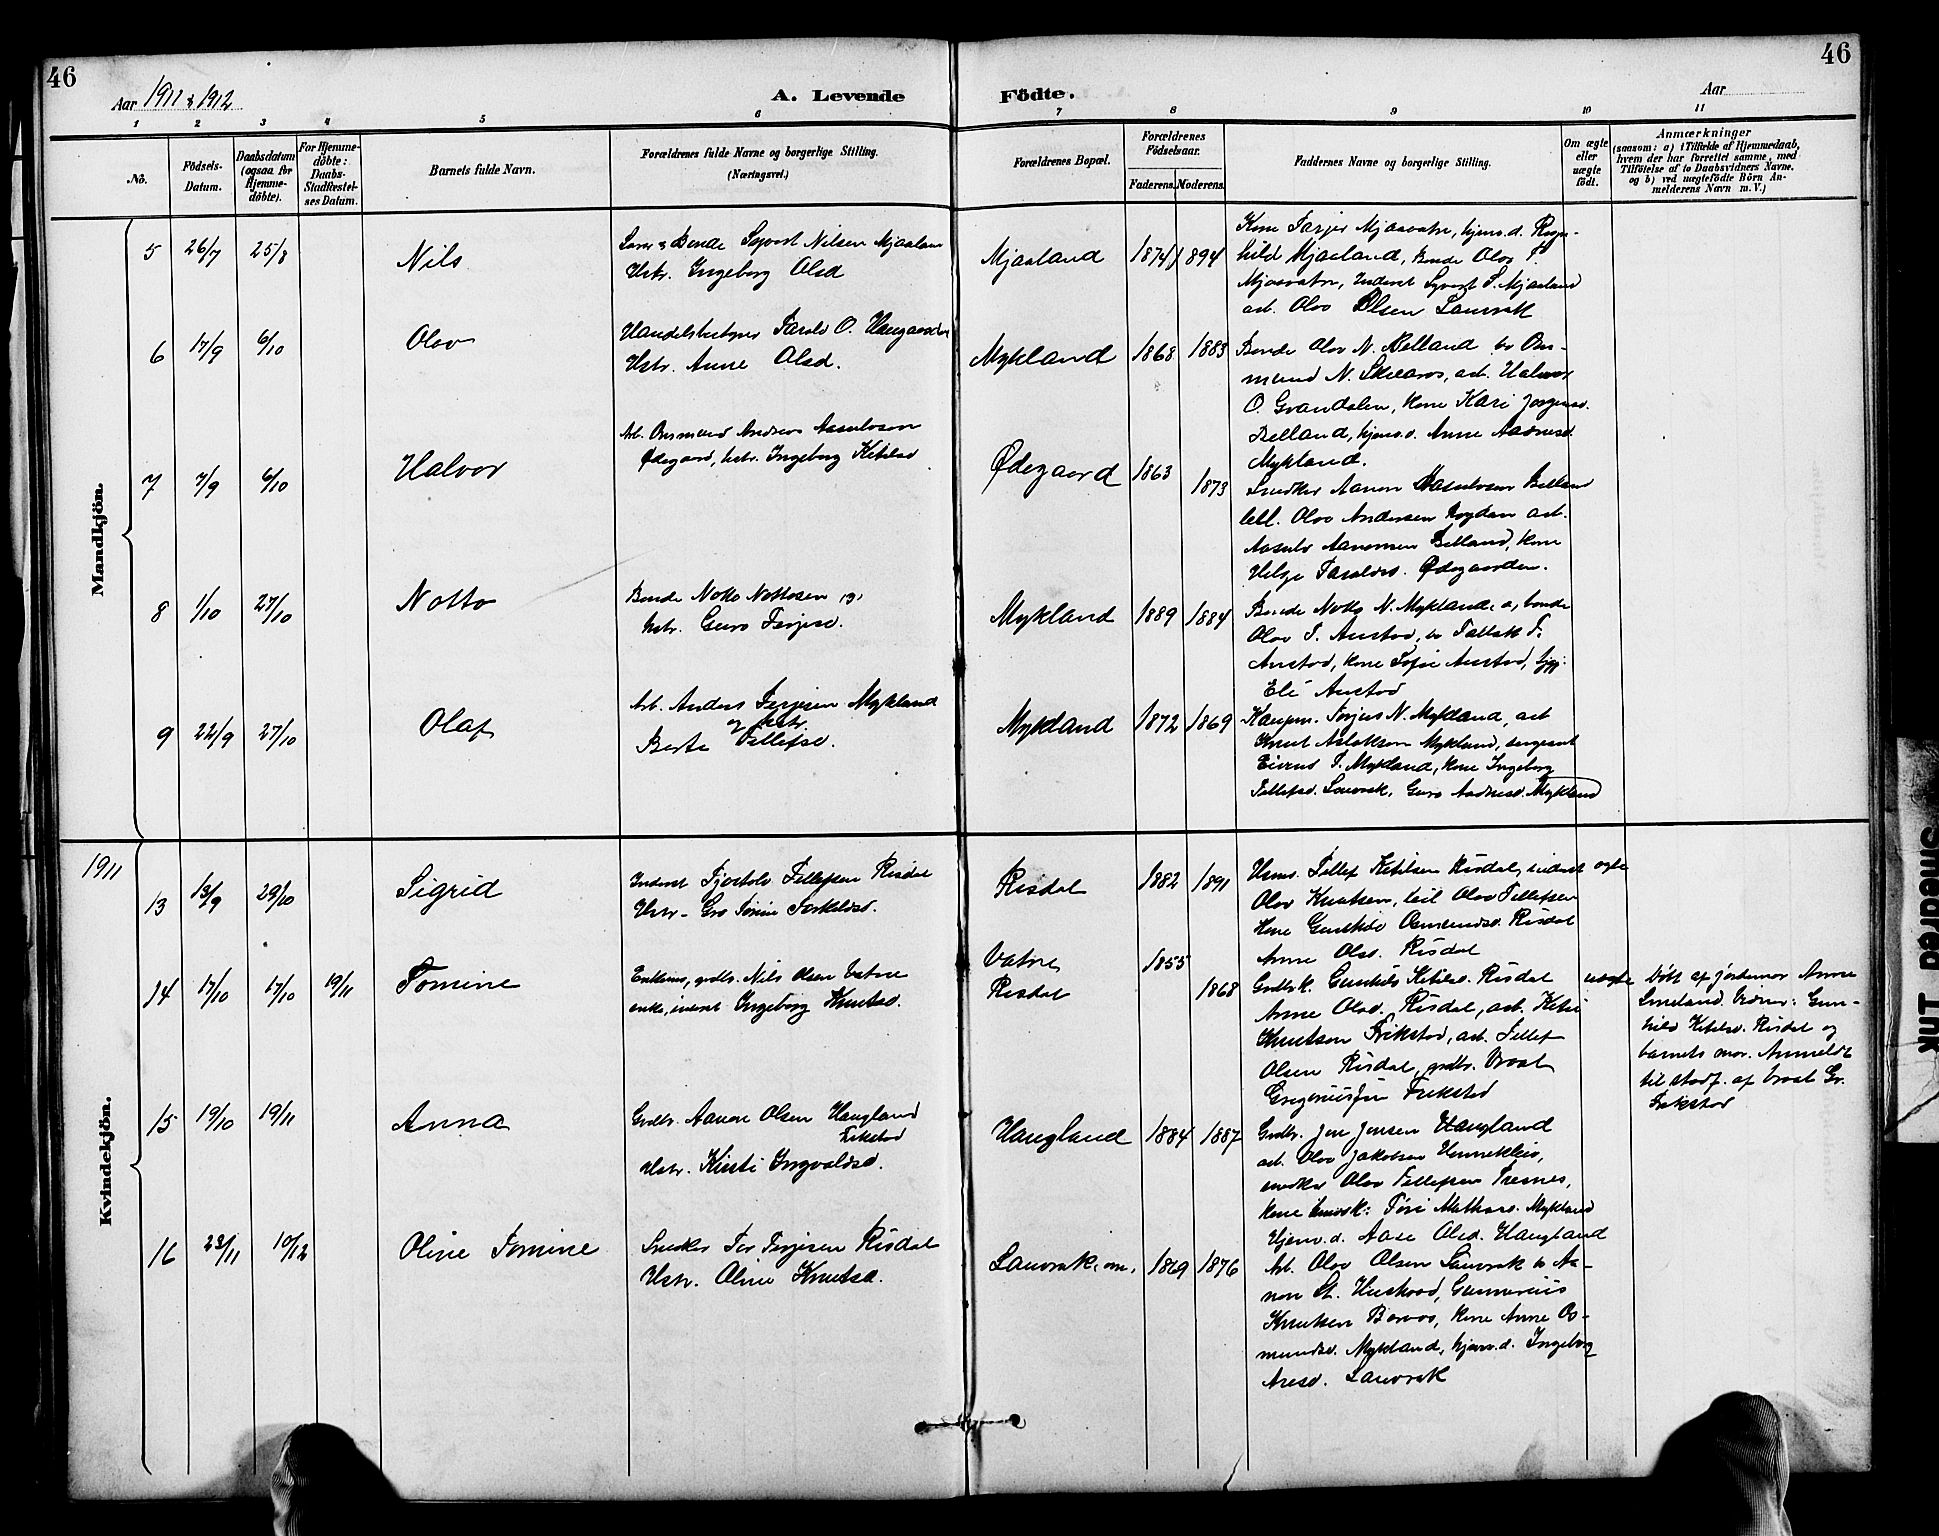 46
46
Aar 1911 & 1912
A. Levende Födte.
Aar
1 2 3 4 5 6 7 8 9 10 11
No.
Födsels-Datum.
Daabsdatum (ogsaa for Hjemme-döbte).
For Hjemme-döbte: Daabs-Stadfæstel-ses Datum.
Barnets fulde Navn.
Forældrenes fulde Navne og borgerlige Stilling. (Næringsvei.)
Forældrenes Bopæl.
Forældrenes Födselsaar.
Faderens. Moderens.
Faddernes Navne og borgerlige Stilling.
Om ægte eller uægte födt.
Anmærkninger
(saasom: a) i Tilfælde af Hjemmedaab, hvem der har forrettet samme, med Tilföielse af to Daabsvidners Navne, og b) ved uægtefödte Börn An-melderens Navn m. V.)
Mandkjön.
5 26/7 25/8 Nils
Bonde Syvert Nilsen Mjaaland
Hstr. Ingeborg Olsd
Mjaaland 1874 1894
Kone Tarjer Mjaavatn, hjemv. d. Ragn-
hild Mjaaland, Bonde Olov T.
Mjaavatn, Inderst Syvert S. Mjaaland
arb. Olov Olsen Lauvrak
6 17/9 6/10 Olov
Handelsbetjent Tarald O. Haugaarden
Hstr. Anne Olsd.
Mykland 1868 1883
Bonde Olov N. Belland
mund N. Skaaros, arb. Halvor
O. Grandalen, kone Kari Jørgensd.
Belland, hjemv. d. Anne Aadnesd.
Mykland.
7 7/9 6/10 Halvor
Arb. Osmund Andreas Aasulvson
Ødegaard, hstr. Ingeborg Ketilsd
Ødegaard 1863 1873
Snedker Aanon Aasulvsen Belland
Olov Andersen arb.
Aasulv Aanonsen Belland, kone
Helge Taraldsd. Ødegaarden.
8 1/10 27/10 Notto
Bonde Notto Nottosen og
hstr. Guro Terjesd.
Mykland 1889 1884
Bonde Notto N. Mykland, bonde
Olov T. Austad, Tellef T.
Austad, kone Sofie Austad,
Eli Austad
9 22/9 27/10 Olaf
Arb. Anders Terjesen Mykland
og hstr.
Berte Tellefsd.
Mykland 1872 1869
Kaupm. Terjus N. Mykland, arb
Knut Aslakson Mykland, sergeant
Eivind T. Mykland, kone Ingeborg
Tellefsd. Lauvrak, Guro Aadnesd. Mykland
1911
Kvindekjön.
13 13/9 29/10 Sigrid
Inderst Tjostolv Tellefsen Risdal
Hstr. Gro Tomine Torkildsd.
Risdal 1882 1891
Husm. Tellef Ketilsen Risdal, inderst
Olov Knutsen, Olov Tellefsen
Kone Gunhild Osmundsd. Risdal
Anne Olsd. Risdal
ægte
14 17/10 17/10 19/11 Tomine
Enkem., grdbr. Nils Olsen Vatne
enke, inderst Ingeborg Knutsd.
Vatne 1855
Risdal 1868
Grdbrk. Gunhild Ketilsd. Risdal
Anne Olsd. Risdal, arb. Ketil
Knutson Frikstad, arb. Tellef
Olsen Risdal, grdbr. Broal
Gregoriusson Frikstad
uægte
Døbt af jordmor Anne
Smeland. Vidner: Gun-
hild Ketilsd. Risdal og
barnets mor. Anmeldt
til stadf. af Broal Gr.
Frikstad
15 19/10 19/11 Anna
Grdbr. Aanon Olsen Haugland
Frikstad
Hstr. Kirsti Ingvaldsd.
Haugland 1884 1887
Grdbr. Jon Jensen Haugland
arb. Olov Jakobsen Hunnekleiv,
snedker Olov Tellefsen Tresnes,
kone Tomi Mathiasd. Mykland
Hjemv. d. Aase Olsd. Haugland
16 23/11 10/12 Oline Tomine
Snedker Tor Terjesen Risdal
Hstr. Oline Knutsd.
Lauvrak, m. 1869 1876
Arb. Olov Olsen Lauvrak Aa-
non St. Heistad, Gunnerius
Knutsen Boraas, kone Anne Os-
mundsd. Mykland, hjemv. d. Ingeborg
Aresd. Lauvrak
Smeared Ink